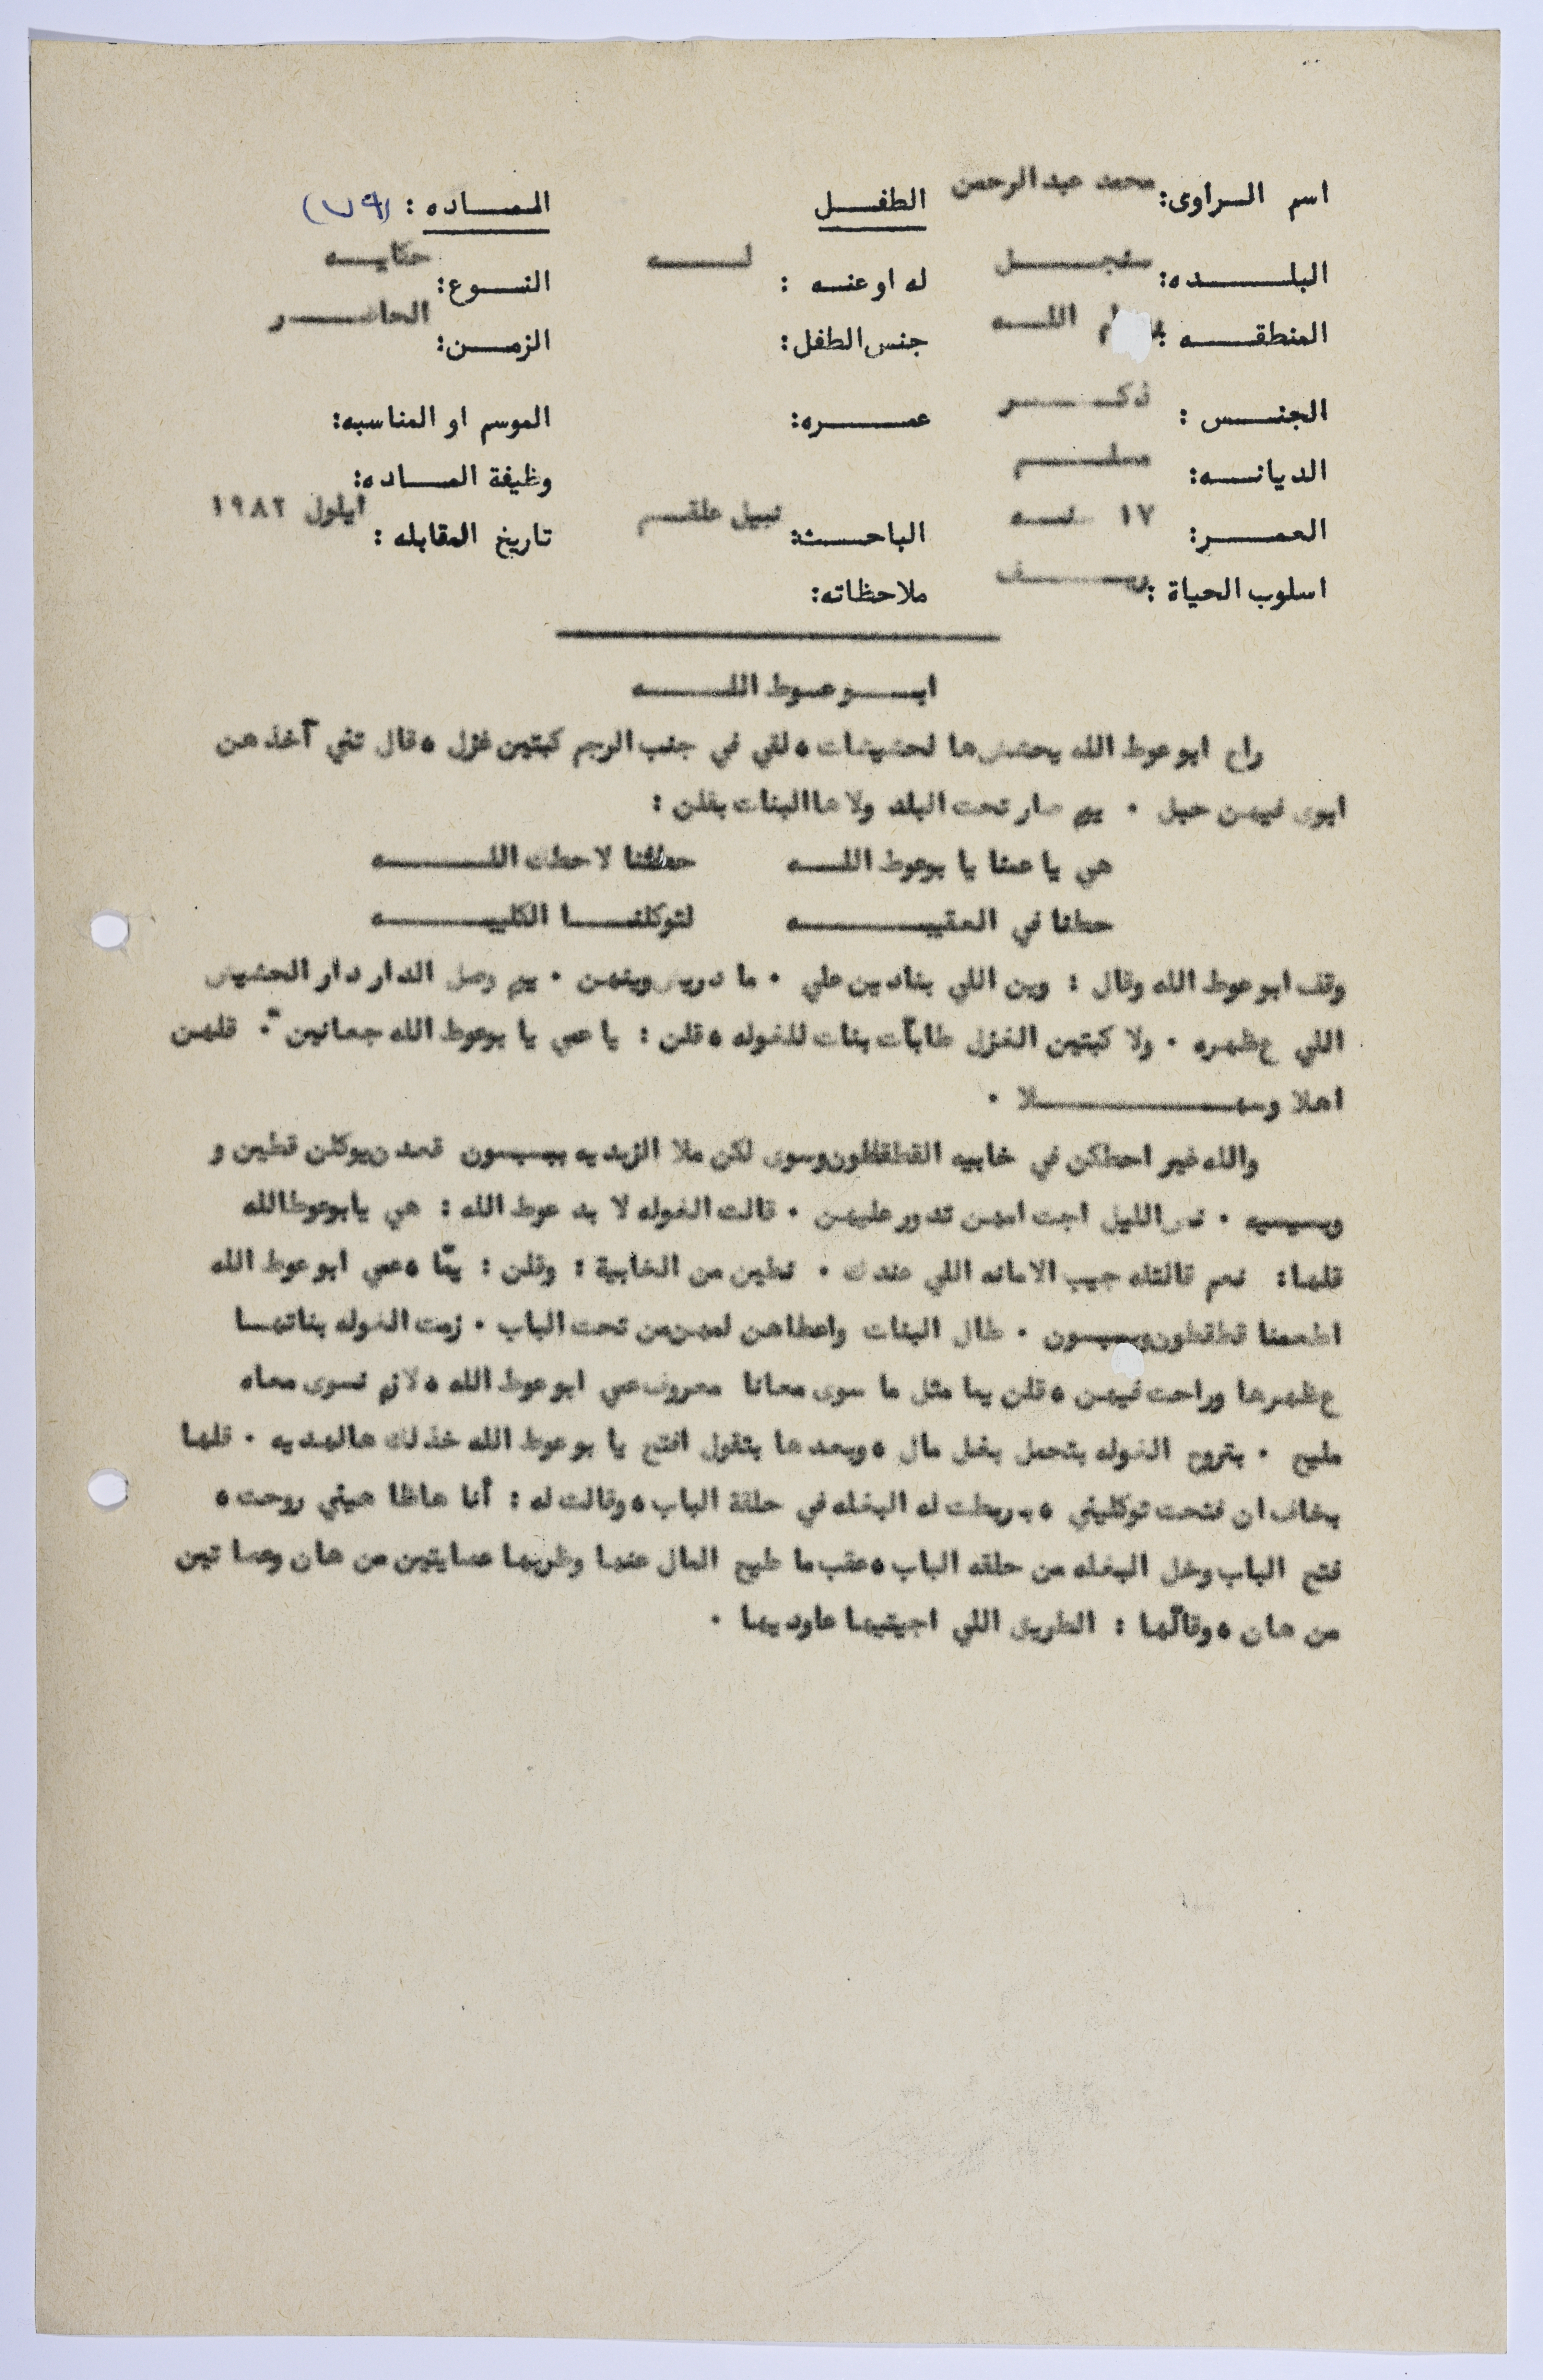 اسم الراوى: محمد عبدالرحمن
الطفل
الماده : (٧٩)
البلده: سنجل
له او عنه : له
النوع: حكايه
المنطقه : الله
جنس الطفل:
الزمن: الحاضر
الجنس : ذكر
عمره:
الموسم او المناسبه:
الديانه: مسلم
وظيفة الماده:
العمر: ١٧ سنه
الباحث: نبيل علقم
تاريخ المقابله : ايلول ١٩٨٢
اسلوب الحياة :
ملاحظاته:
ابو عوط الله
راح ابو عوط الله يحشش ها لحشيشات ، لقي في جنب الرجم كبتين غزل ، قال تني آخذ هن
ابوى فيهن حبل . يم صار تحت البلد ولا ها البنات بقلن :
هي يا عمنا يا بوعوط الله حطتنا لا حطك الله
حطنا في العقيبه لتوكلنا الكليبه
وقف ابو عوط الله وقال : وين اللي بنادين علي . ما دريش وينهن . يم وصل الدار دار الحشيش
اللي ع ظهره . ولا كبتين الغزل طابآت بنات للغوله ، قلن : يا عمي يا بوعوط الله جعانين . قلهن
اهلا وسهلا .
والله غير احطكن في خابيه القطقطون وسوى لكن ملا الزبديه بيسسون قعدن يوكلن قطين و
وبسيسه . نص الليل اجت امهن تدور عليهن . قالت الغوله لا بد عوط الله : هي يابوعوط الله
قلها: نعم قالتله جيب الامانه اللي عندك . نطين من الخابية : وقلن : يمّا ، عمي ابو عوط الله
اطعمنا قطقطون وبسسون . طال البنات واعطاهن لمهن من تحت الباب . زمت الغوله بناتها
ع ظهرها وراحت فيهن ، قلن يما مثل ما سوى معانا معروف عمي ابو عوط الله ، لازم نسوى معاه
مليح . بتروح الغوله بتحمل بغل مال ، وبعدها بتقول افتح يا بوعوط الله خذلك هالهديه . قلها
بخاف ان فتحت توكليني ، ربطت له البغله في حلقة الباب ، وقالت له : أنا هاظا هيني روحت ،
فتح الباب وخل البغله من حلقه الباب ، عقب ما طيح المال عنها وظربها عصايتين من هان وعصا تين
من هان ، وقالّها : الطريق اللي اجيتيها عاوديها .